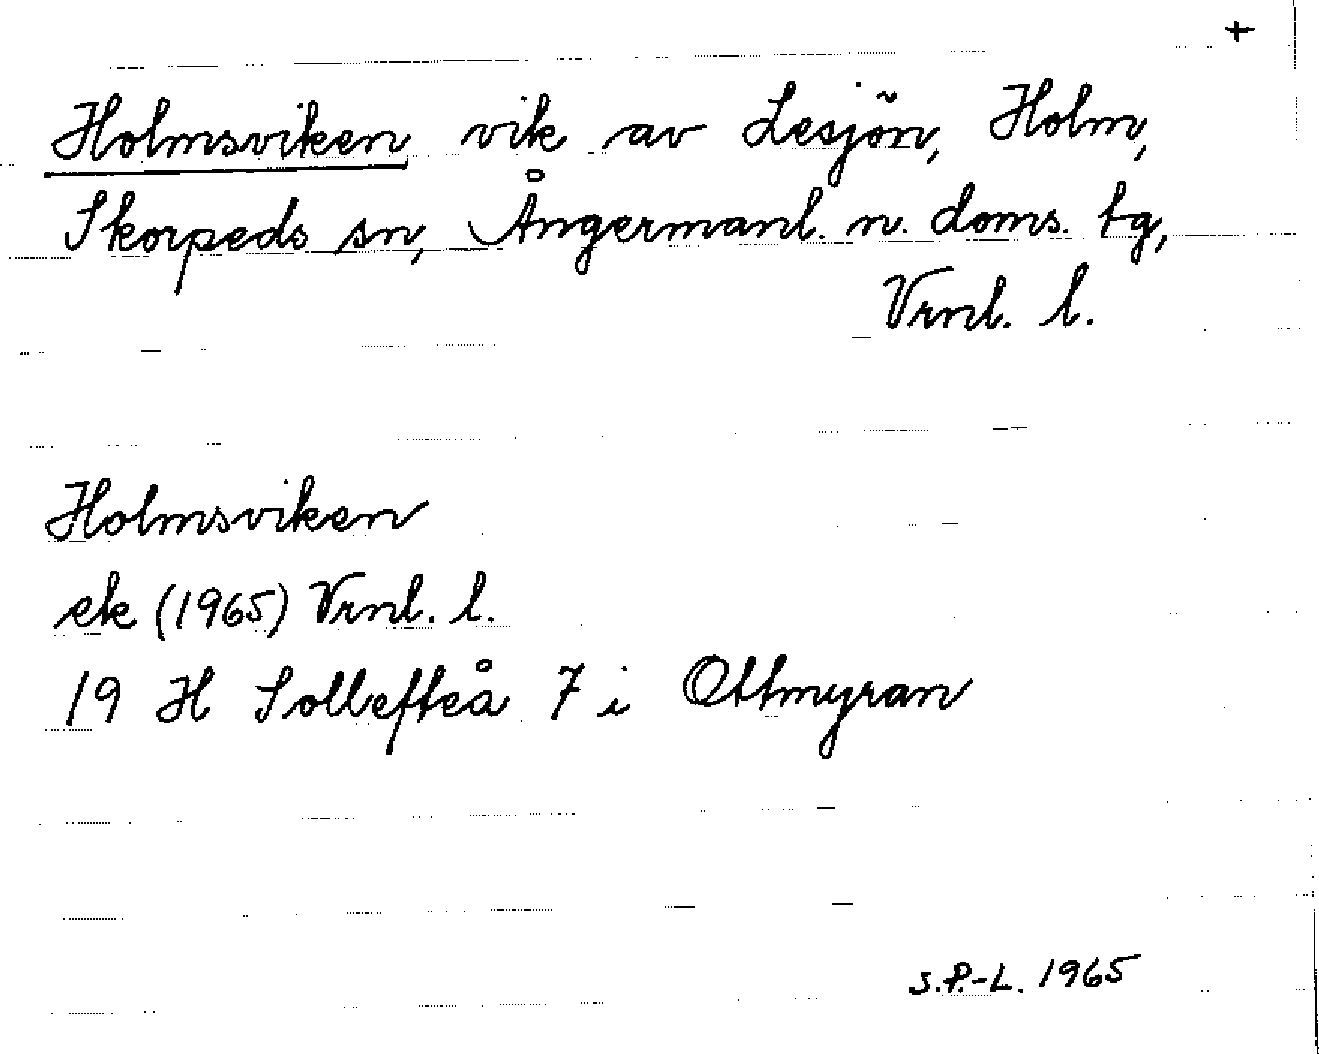 +
Holmsviken vik av Lesjön, Holm,
Skorpeds sn, Ångermanl. n. doms. tg,
Vrnl. l.
Holmsviken
ek (1965) Vrnl. l.
19 H Sollefteå 7 i Ottmyran
S.P.-L. 1965